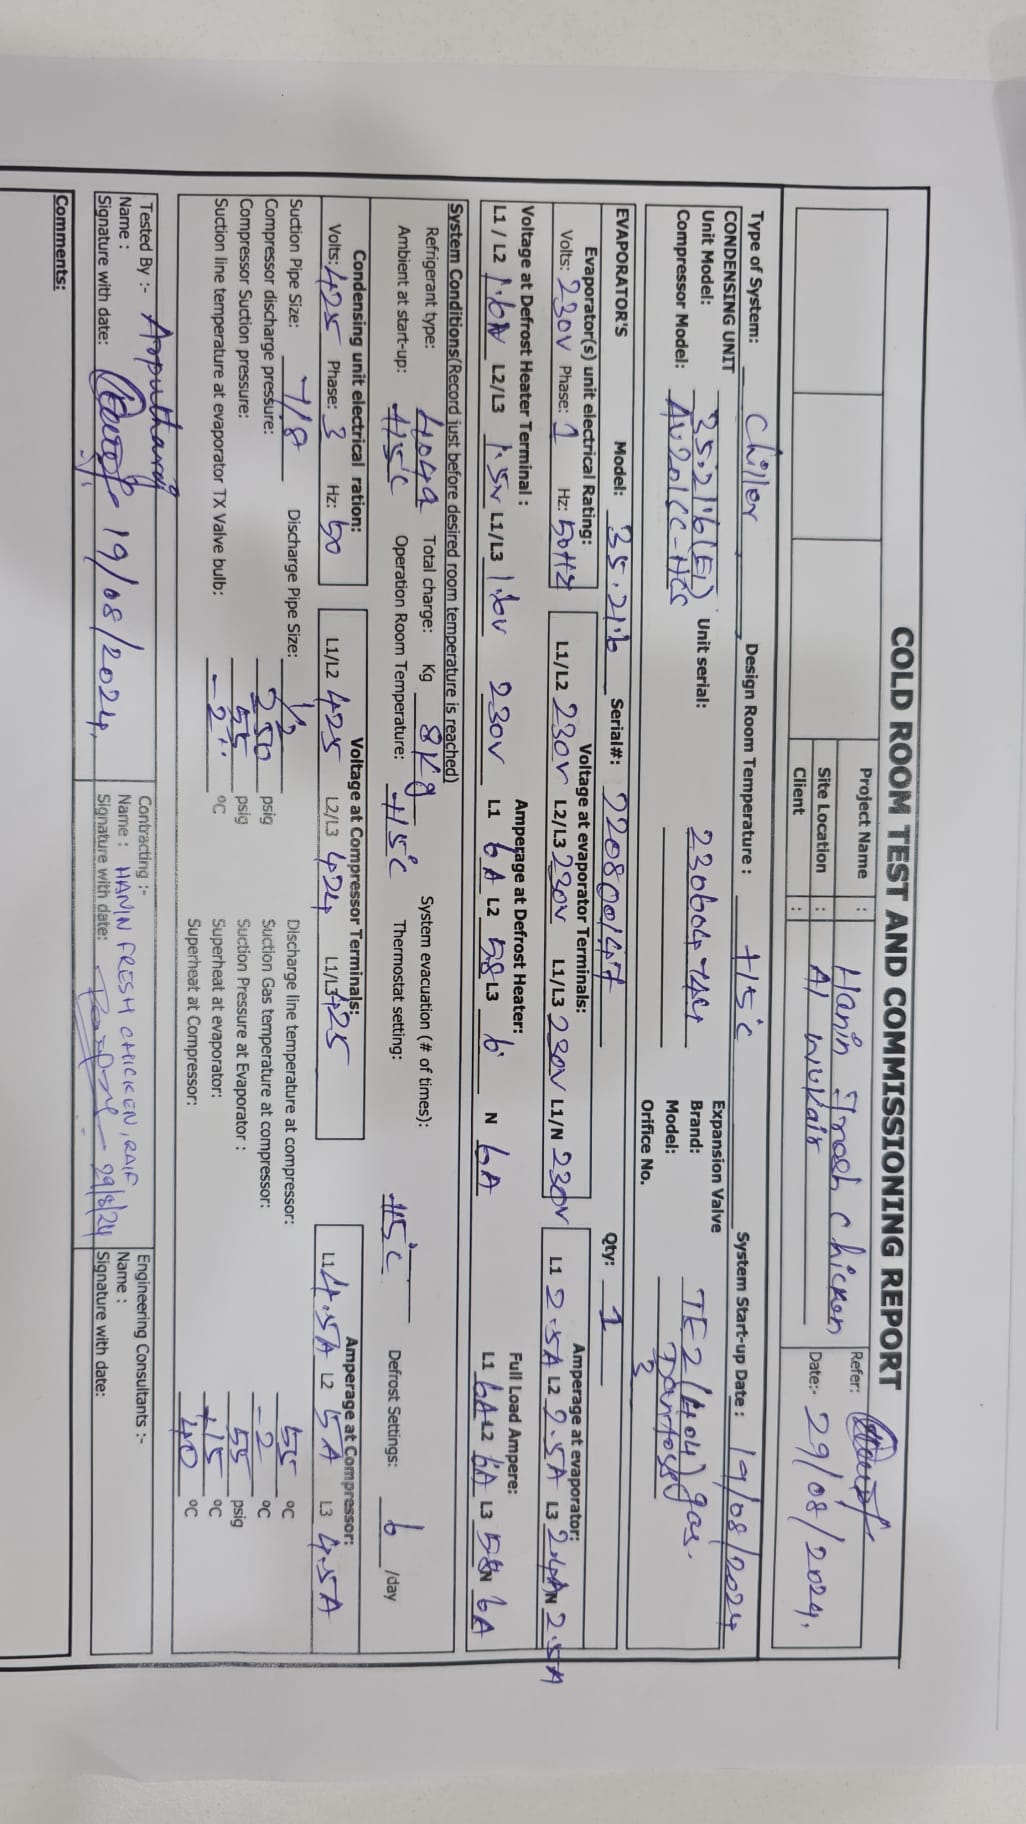 COLD ROOM TEST AND COMMISSIONING REPORT
Project Name : Hanin Fresh chicken Refer:
Site Location : Al wukair Date:- 29/08/2024,
Client :
Type of System: Chiller Design Room Temperature : +15°C System Start-up Date : 19/08/2024
CONDENSING UNIT Expansion Valve
Unit Model: Unit serial: Brand: TE2 (404) gas.
Compressor Model: Model: Danfoss
Orifice No. 3
EVAPORATOR'S Model: Serial#: Qty: 1
Evaporator(s) unit electrical Rating: Voltage at evaporator Terminals: Amperage at evaporator:
Volts: 230V Phase: 1 Hz: 50HZ L1/L2 230V L2/L3 230V L1/L3 230V L1/N 230V L1 2.5A L2 2.5A L3 2.4A N 2.5A
Voltage at Defrost Heater Terminal : Amperage at Defrost Heater: Full Load Ampere:
L1 / L2 L2/L3 L1/L3 230V L1 6A L2 L3 6 N 6A L1 6A L2 6A L3 N 6A
System Conditions(Record just before desired room temperature is reached)
Refrigerant type: 404a Total charge: Kg 8Kg System evacuation (# of times):
Ambient at start-up: Operation Room Temperature: +15°C Thermostat setting: +15°C Defrost Settings: 6 /day
Condensing unit electrical ration: Voltage at Compressor Terminals: Amperage at Compressor:
Volts: 425 Phase: 3 Hz: 50 L1/L2 425 L2/L3 424 L1/L3 425 L1 4.5A L2 5A L3 4.5A
Suction Pipe Size: 7/8 Discharge Pipe Size: 1/2 Discharge line temperature at compressor: 55 °C
Compressor discharge pressure: 250 psig Suction Gas temperature at compressor: -2 °C
Compressor Suction pressure: 55 psig Suction Pressure at Evaporator : 55 psig
Suction line temperature at evaporator TX Valve bulb: -2 °C Superheat at evaporator: +15 °C
Superheat at Compressor: °C
Tested By :- Contracting :- Engineering Consultants :-
Name : Name : HANIN FRESH CHICKEN, RAIF Name :
Signature with date: 19/08/2024, Signature with date: 29/8/24 Signature with date:
Comments: